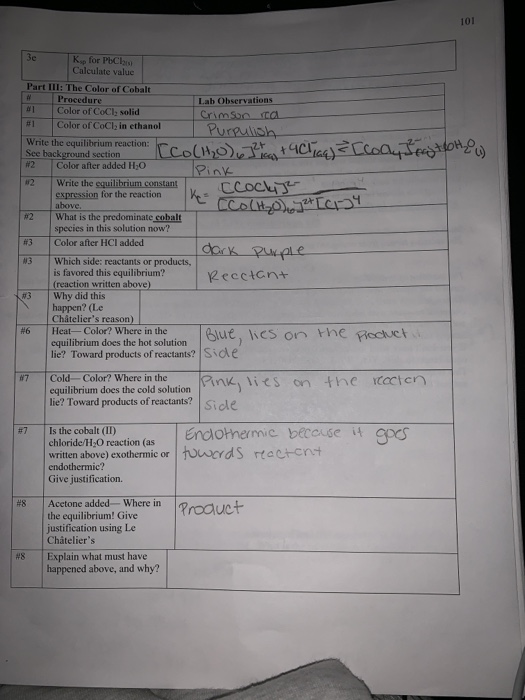 101
3c
Ksp for PbCl2(s)
Calculate value
Part III: The Color of Cobalt
# Procedure Lab Observations
#1 Color of CoCl2 solid Crimson red
#1 Color of CoCl2 in ethanol Purpulish
Write the equilibrium reaction:
See background section
[Co(H2O)6]2+(aq) + 4Cl-(aq) ⇌ [CoCl4]2-(aq) + 6H2O(l)
#2 Color after added H2O Pink
#2 Write the equilibrium constant
expression for the reaction
above.
Kc = [CoCl4]2-
[Co(H2O)6]2+[Cl-]4
#2 What is the predominate cobalt
species in this solution now?
#3 Color after HCl added dark purple
#3 Which side: reactants or products,
is favored this equilibrium?
(reaction written above)
Reectant
#3 Why did this
happen? (Le
Châtelier's reason)
#6 Heat— Color? Where in the
equilibrium does the hot solution
lie? Toward products of reactants?
Blue, lies on the Product
side
#7 Cold— Color? Where in the
equilibrium does the cold solution
lie? Toward products of reactants?
Pink, lies on the reacten
side
#7 Is the cobalt (II)
chloride/H2O reaction (as
written above) exothermic or
endothermic?
Give justification.
Endothermic because it goes
towards reactant
#8 Acetone added— Where in
the equilibrium! Give
justification using Le
Châtelier's
Product
#8 Explain what must have
happened above, and why?